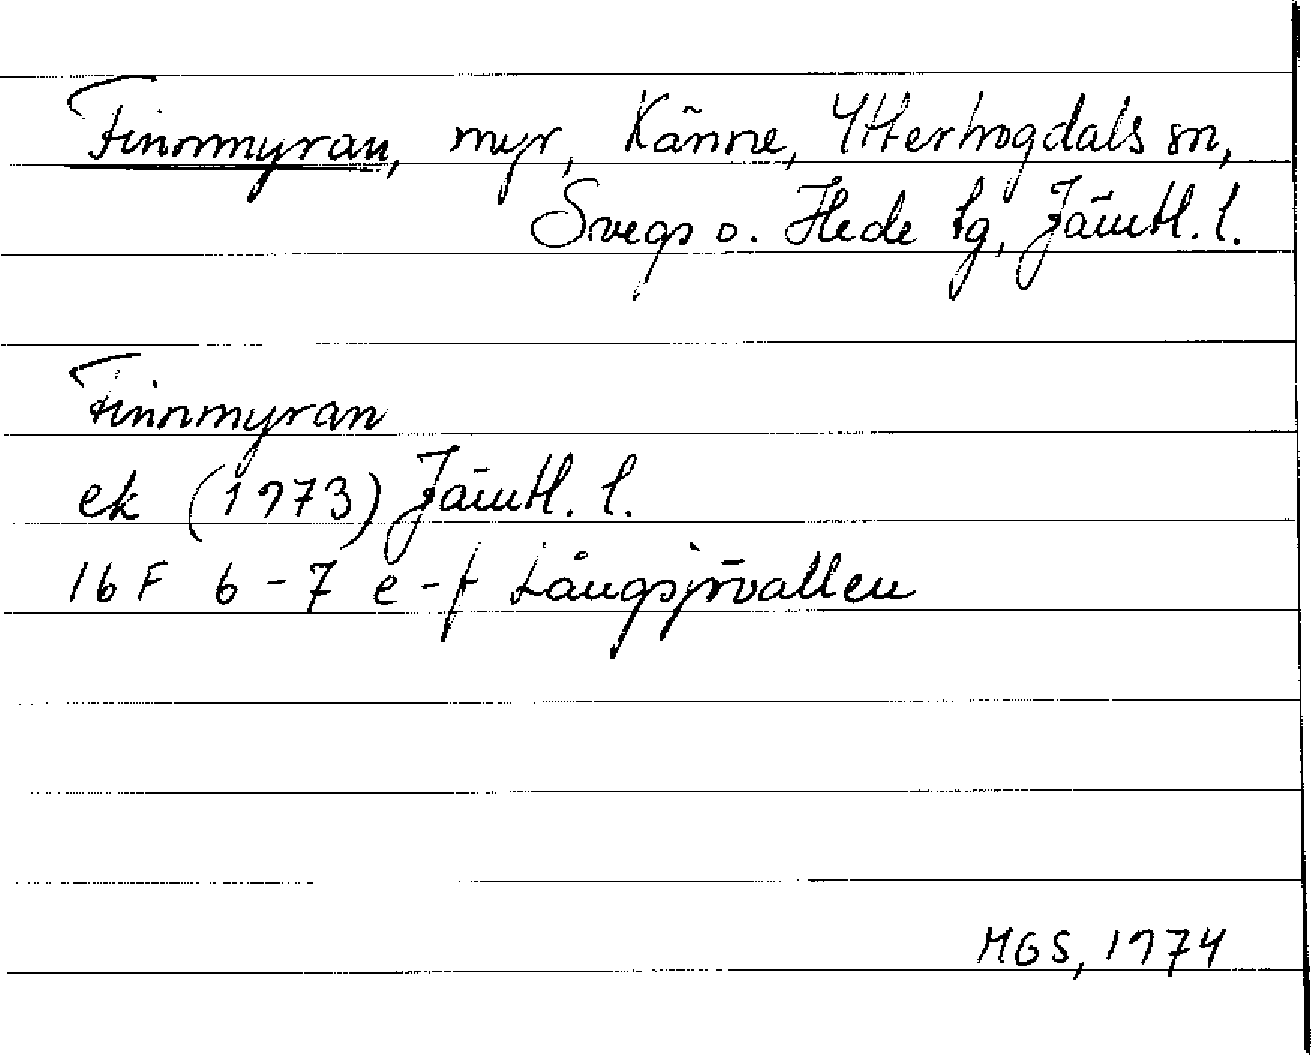 Finnmyran, myr, Känne, Ytterhogdals sn,
Svegs o. Hede tg, Jämtl. l.
Finnmyran
ek (1973) Jämtl. l.
16F 6-7 e-f Långsjövallen
MGS, 1974